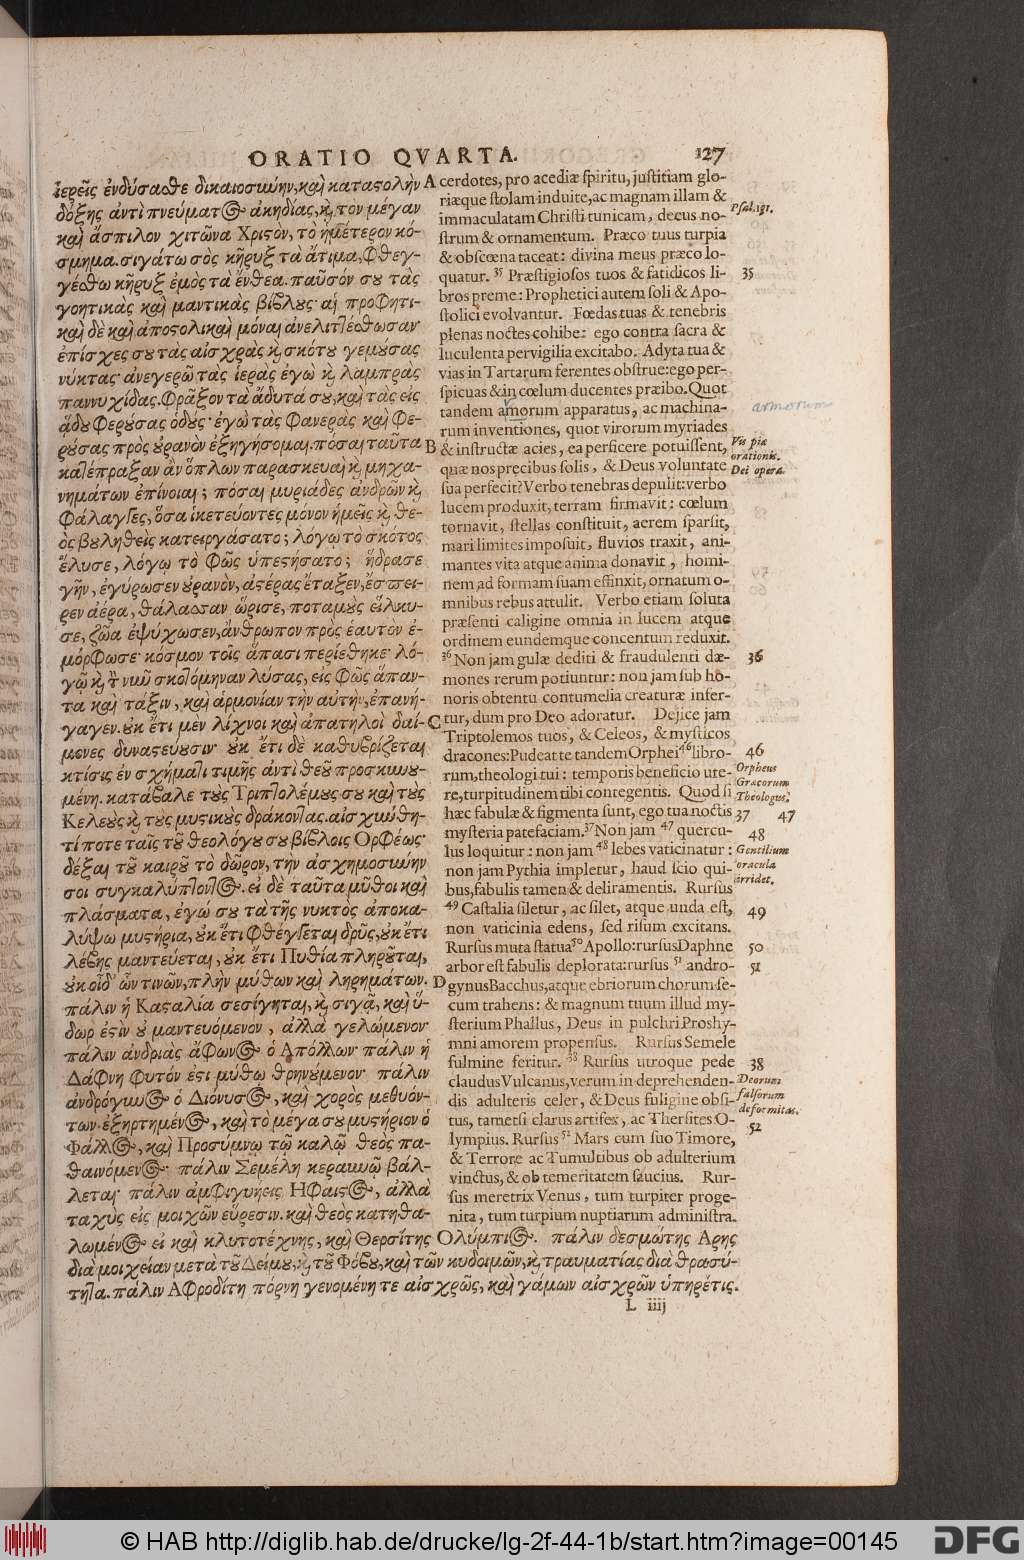 ORATIO QVARTA. 127
ἱερεῖς ἐνδύσασθε δικαιοσύνην, καὶ καταστολὴν
δόξης ἀντὶ πνεύματος ἀκηδίας, καὶ τὸν μέγαν
καὶ ἄσπιλον χιτῶνα Χριστόν, τὸ ἡμέτερον κό-
σμημα. σιγάτω σὸς κῆρυξ τὰ ἄτιμα, φθεγ-
γέσθω κῆρυξ ἐμὸς τὰ ἔνθεα. παῦσόν σου τὰς
γοητικὰς καὶ μαντικὰς βίβλους· αἱ προφητι-
καὶ δὲ καὶ ἀποστολικαὶ μόναι ἀνελιττέσθωσαν
ἐπίσχες σου τὰς αἰσχρὰς καὶ σκότου γεμούσας
νύκτας· ἀνεγερῶ τὰς ἱερὰς ἐγὼ καὶ λαμπρὰς
παννυχίδας. Φράξον τὰ ἄδυτά σου, καὶ τὰς εἰς
ᾅδου φερούσας ὁδούς· ἐγὼ τὰς φανερὰς καὶ φε-
ρούσας πρὸς οὐρανὸν ἐξηγήσομαι. πόσαι ταῦτα
κατέπραξαν ἂν ὅπλων παρασκευαὶ καὶ μηχα-
νημάτων ἐπίνοιαι; πόσαι μυριάδες ἀνδρῶν καὶ
φάλαγγες, ὅσα ἱκετεύοντες μόνον ἡμεῖς καὶ θε-
ὸς βουληθεὶς κατειργάσατο; λόγῳ τὸ σκότος
ἔλυσε, λόγῳ τὸ φῶς ὑπεστήσατο; ἥδρασε
γῆν, ἐγύρωσεν οὐρανὸν, ἀστέρας ἔταξεν, ἔσπει-
ρεν ἀέρα, θάλασσαν ὥρισε, ποταμοὺς εἵλκυ-
σε, ζῶα ἐψύχωσεν, ἄνθρωπον πρὸς ἑαυτὸν ἐ-
μόρφωσε· κόσμον τοῖς ἅπασι περιέθηκε· λό-
γῳ καὶ τὴν νῦν σκοτόμηναν λύσας, εἰς φῶς ἅπαν-
τα καὶ τάξιν, καὶ ἁρμονίαν τὴν αὐτὴν, ἐπανή-
γαγεν. οὐκ ἔτι μὲν λίχνοι καὶ ἀπατηλοὶ δαί-
μονες δυναστεύουσιν· οὐκ ἔτι δὲ καθυβρίζεται
κτίσις ἐν σχήματι τιμῆς ἀντὶ θεοῦ προσκυνου-
μένη. κατάβαλε τοὺς Τριπτολέμους σου καὶ τοὺς
Κελεοὺς καὶ τοὺς μυστικοὺς δράκοντας. αἰσχύνθη-
τί ποτε ταῖς τοῦ θεολόγου σου βίβλοις Ορφέως·
δέξαι τοῦ καιροῦ τὸ δῶρον, τὴν ἀσχημοσύνην
σοι συγκαλύπτοντος. εἰ δὲ ταῦτα μῦθοι καὶ
πλάσματα, ἐγώ σου τὰ τῆς νυκτὸς ἀποκα-
λύψω μυστήρια, οὐκ ἔτι φθέγγεται δρῦς, οὐκ ἔτι
λέβης μαντεύεται, οὐκ ἔτι Πυθία πληροῦται,
οὐκ οἶδ' ὧν τινῶν, πλὴν μύθων καὶ ληρημάτων.
πάλιν ἡ Κασταλία σεσίγηται, καὶ σιγᾷ, καὶ ὕ-
δωρ ἐστὶν οὐ μαντευόμενον, ἀλλὰ γελώμενον·
πάλιν ἀνδριὰς ἄφωνος ὁ Απόλλων· πάλιν ἡ
Δάφνη φυτόν ἐστι μύθῳ θρηνούμενον· πάλιν
ἀνδρόγυνος ὁ Διόνυσος, καὶ χορὸς μεθυόν-
των ἐξηρτημένος, καὶ τὸ μέγα σου μυστήριον ὁ
Φάλλος, καὶ Προσύμνῳ τῷ καλῷ θεὸς πα-
θαινόμενος· πάλιν Σεμέλη κεραυνῷ βάλ-
λεται· πάλιν ἀμφιγυήεις Ηφαιστος, ἀλλὰ
ταχὺς εἰς μοιχῶν εὕρεσιν. καὶ θεὸς κατηθα-
λωμένος εἰ καὶ κλυτοτέχνης, καὶ Θερσίτης Ολύμπιος. πάλιν δεσμώτης Αρης
διὰ μοιχείαν μετὰ τοῦ Δείμου, καὶ τοῦ Φόβου, καὶ τῶν κυδοιμῶν, καὶ τραυματίας διὰ θρασύ-
τητα. πάλιν Αφροδίτη πόρνη γενομένη τε αἰσχρῶς, καὶ γάμων αἰσχρῶν ὑπηρέτις.
A cerdotes, pro acediæ spiritu, justitiam glo-
riæque stolam induite, ac magnam illam &
immaculatam Christi tunicam, decus no-
strum & ornamentum. Præco tuus turpia
& obscœna taceat: divina meus præco lo-
quatur. 35 Præstigiosos tuos & fatidicos li-
bros preme: Prophetici autem soli & Apo-
stolici evolvantur. Fœdas tuas & tenebris
plenas noctes cohibe: ego contra sacra &
luculenta pervigilia excitabo. Adyta tua &
vias in Tartarum ferentes obstrue: ego per-
spicuas & in cœlum ducentes præibo. Quot
tandem amorum apparatus, ac machina-
rum inventiones, quot virorum myriades
B & instructæ acies, ea perficere potuissent,
quæ nos precibus solis, & Deus voluntate
sua perfecit? Verbo tenebras depulit: verbo
lucem produxit, terram firmavit: cœlum
tornavit, stellas constituit, aerem sparsit,
mari limites imposuit, fluvios traxit, ani-
mantes vita atque anima donavit, homi-
nem ad formam suam effinxit, ornatum o-
mnibus rebus attulit. Verbo etiam soluta
præsenti caligine omnia in lucem atque
ordinem eundemque concentum reduxit.
36 Non jam gulæ dediti & fraudulenti dæ-
mones rerum potiuntur: non jam sub ho-
noris obtentu contumelia creaturæ infer-
C tur, dum pro Deo adoratur. Dejice jam
Triptolemos tuos, & Celeos, & mysticos
dracones: Pudeat te tandem Orphei 46 libro-
rum, theologi tui: temporis beneficio ute-
re, turpitudinem tibi contegentis. Quod si
hæc fabulæ & figmenta sunt, ego tua noctis
mysteria patefaciam. 37 Non jam 47 quercu-
lus loquitur: non jam 48 lebes vaticinatur:
non jam Pythia impletur, haud scio qui-
bus, fabulis tamen & deliramentis. Rursus
49 Castalia siletur, ac silet, atque unda est,
non vaticinia edens, sed risum excitans.
Rursus muta statua 50 Apollo: rursus Daphne
arbor est fabulis deplorata: rursus 51 andro-
D gynus Bacchus, atque ebriorum chorum se-
cum trahens: & magnum tuum illud my-
sterium Phallus, Deus in pulchri Proshy-
mni amorem propensus. Rursus Semele
fulmine feritur. 38 Rursus utroque pede
claudus Vulcanus, verum in deprehenden-
dis adulteris celer, & Deus fuligine obsi-
tus, tametsi clarus artifex, ac Thersites O-
lympius. Rursus 52 Mars cum suo Timore,
& Terrore ac Tumultibus ob adulterium
vinctus, & ob temeritatem saucius. Rur-
sus meretrix Venus, tum turpiter proge-
nita, tum turpium nuptiarum administra.
Psal. 131.
35
armorum
Vis piæ
orationis.
Dei opera.
36
46
Orpheus
Græcorum
Theologus.
37 47
48
Gentilium
oracula
irridet.
49
50
51
38
Deorum
falsorum
deformitas.
52
L iiij
© HAB http://diglib.hab.de/drucke/lg-2f-44-1b/start.htm?image=00145
DFG